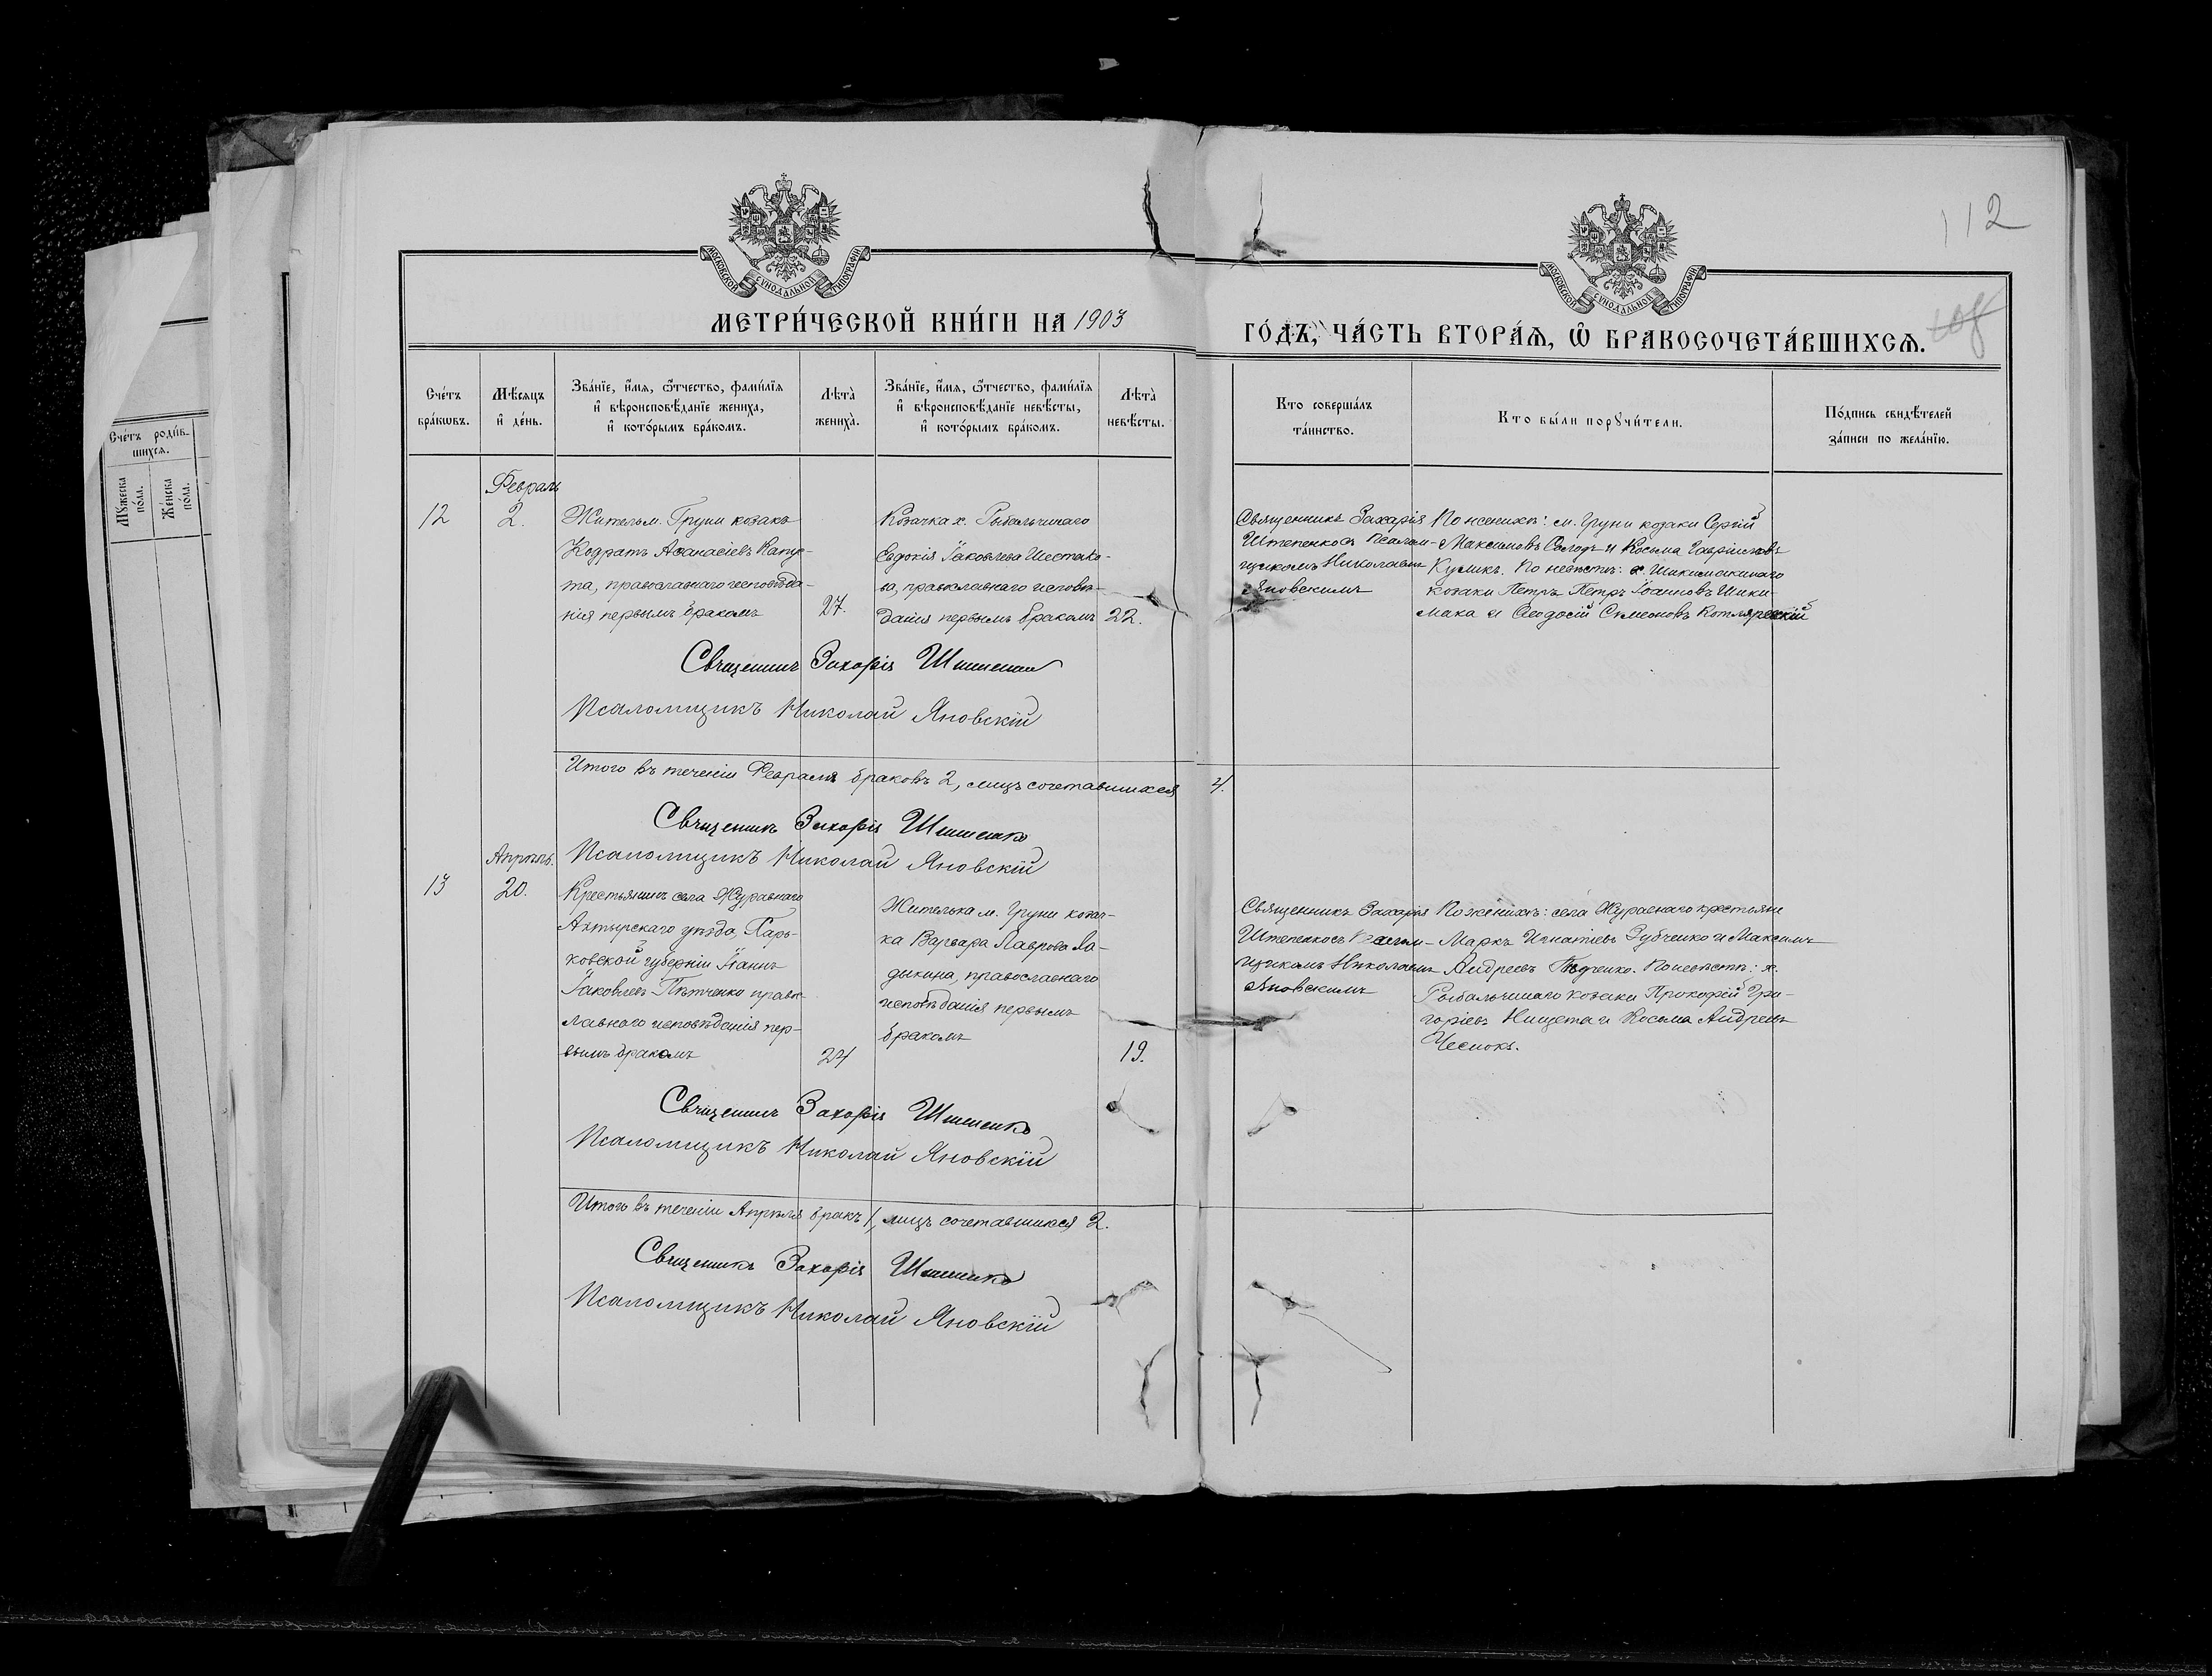 112
МОСКОВСКОЙ СУНОДАЛЬНОЙ ТИПОГРАФІИ
МОСКОВСКОЙ СУНОДАЛЬНОЙ ТИПОГРАФІИ
МЕТРИ́ЧЕСКОЙ КНИ́ГИ НА 1903
ГО́ДЪ, ЧА́СТЬ ВТОРА́Ѧ, Ѿ БРАКОСОЧЕТА́ВШИХСѦ.
Сче́тъ бра́кѡвъ.
Мѣ́сѧцъ и҆ де́нь.
Зва́нїе, и҆́мѧ, ѻ҆́тчество, фами́лїѧ и҆ вѣроисповѣ́данїе жениха̀, и҆ кото́рымъ бра́комъ.
Лѣта̀ жениха̀.
Зва́нїе, и҆́мѧ, ѻ҆́тчество, фами́лїѧ и҆ вѣроисповѣ́данїе невѣ́сты, и҆ кото́рымъ бра́комъ.
Лѣта̀ невѣ́сты.
Кто соверша́лъ та́инство.
Кто бы́ли порꙋчи́тели.
По́дпись свидѣ́телей за́писи по жела́нїю.
Сче́тъ роди́в-
шихсѧ.
Мꙋ́жеска по́ла.
Же́нска по́ла.
Февраль
12
2.
Житель м. Груни козакъ
Кодратъ Аѳанасіевъ Капус-
та, православнаго исповѣда-
нія первымъ бракомъ
27.
Козачка х. Рыбальчинаго
Евдокія Іаковлева Шестако-
ва, православнаго исповѣ-
данія первымъ бракомъ
22.
Священникъ Захарія
Штепенко съ псалом-
щикомъ Николаемъ
Яновскимъ
По женихѣ: м. Груни козаки Сергій
Максимовъ Солодъ и Косьма Гавріиловъ
Куликъ. По невѣстѣ: х. Шикимакинаго
козаки Петръ Петръ Іоанновъ Шики-
мака и Ѳеодосій Симеоновъ Котляревскій
Священникъ Захарія Штепенко
Псаломщикъ Николай Яновскій
Итого въ теченіи Февраля браковъ 2, лицъ сочетавшихся 4.
Священникъ Захарія Штепенко
Псаломщикъ Николай Яновскій
Апрѣль.
13
20.
Крестьянинъ села Журавнаго
Ахтырскаго уѣзда, Харь-
ковской губерніи Іоаннъ
Іаковлевъ Пѣтченко правос-
лавнаго исповѣданія пер-
вымъ бракомъ
24
Жителька м. Груни козач-
ка Варвара Лаврова Ла-
дыкина, православнаго
исповѣданія первымъ
бракомъ
19.
Священникъ Захарія
Штепенко съ псалом-
щикомъ Николаемъ
Яновскимъ
По женихѣ: села Журавнаго крестьяне
Маркъ Игнатіевъ Зубченко и Максимъ
Андреевъ. По невѣстѣ: х.
Рыбальчинаго козаки Прокофій Гри-
горіевъ Нищета и Косьма Андреевъ
Чеснокъ.
Священникъ Захарія Штепенко
Псаломщикъ Николай Яновскій
Итого въ теченіи Апрѣля бракъ 1, лицъ сочетавшихся 2.
Священникъ Захарія Штепенко
Псаломщикъ Николай Яновскій